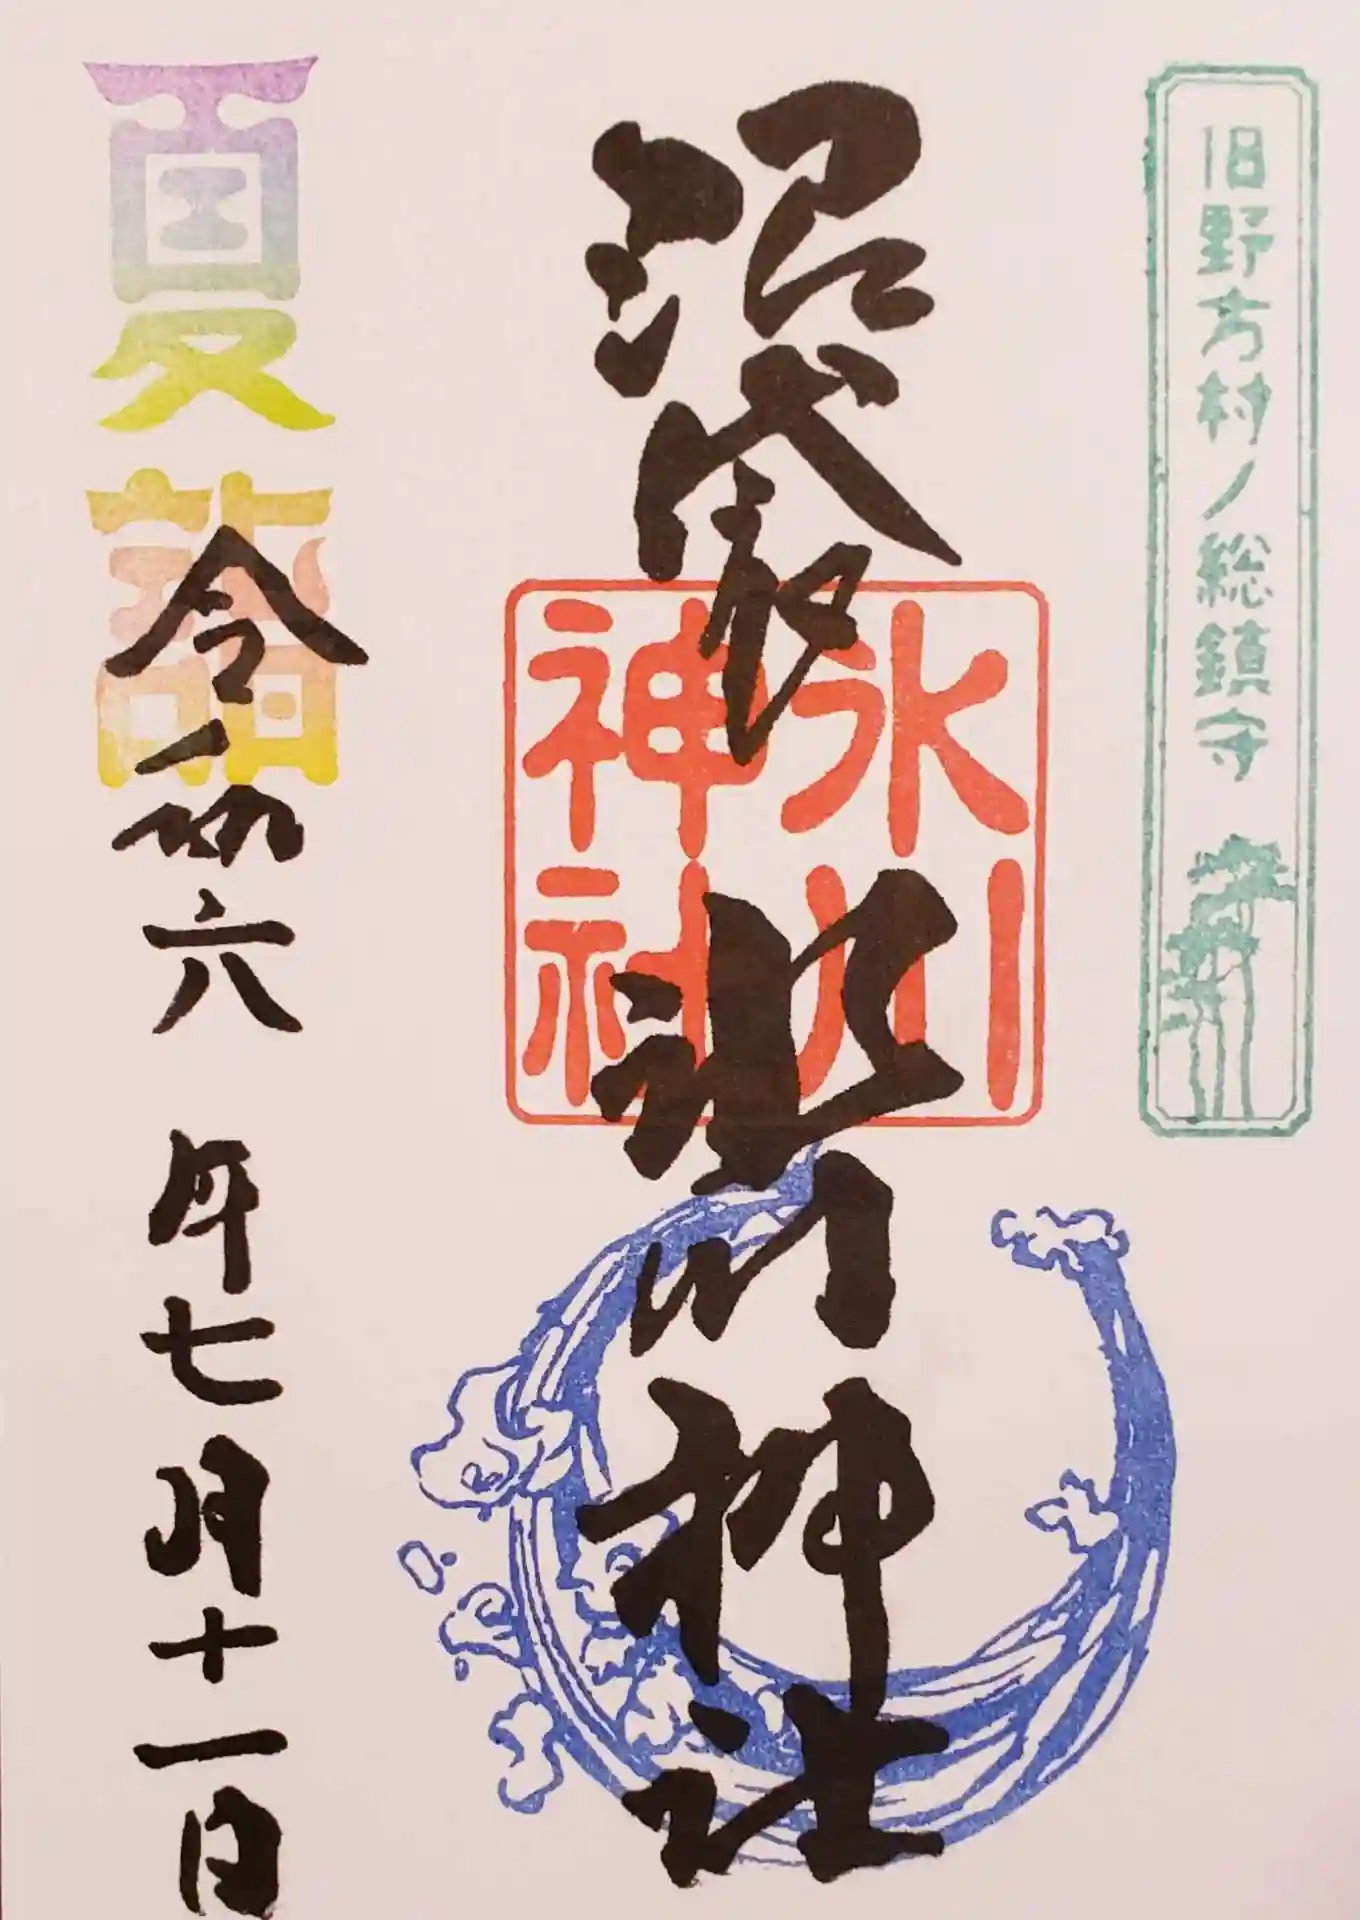 旧野方村ノ総鎮守
沼袋
氷川神社
氷川
神社
夏詣
令和六年七月十一日